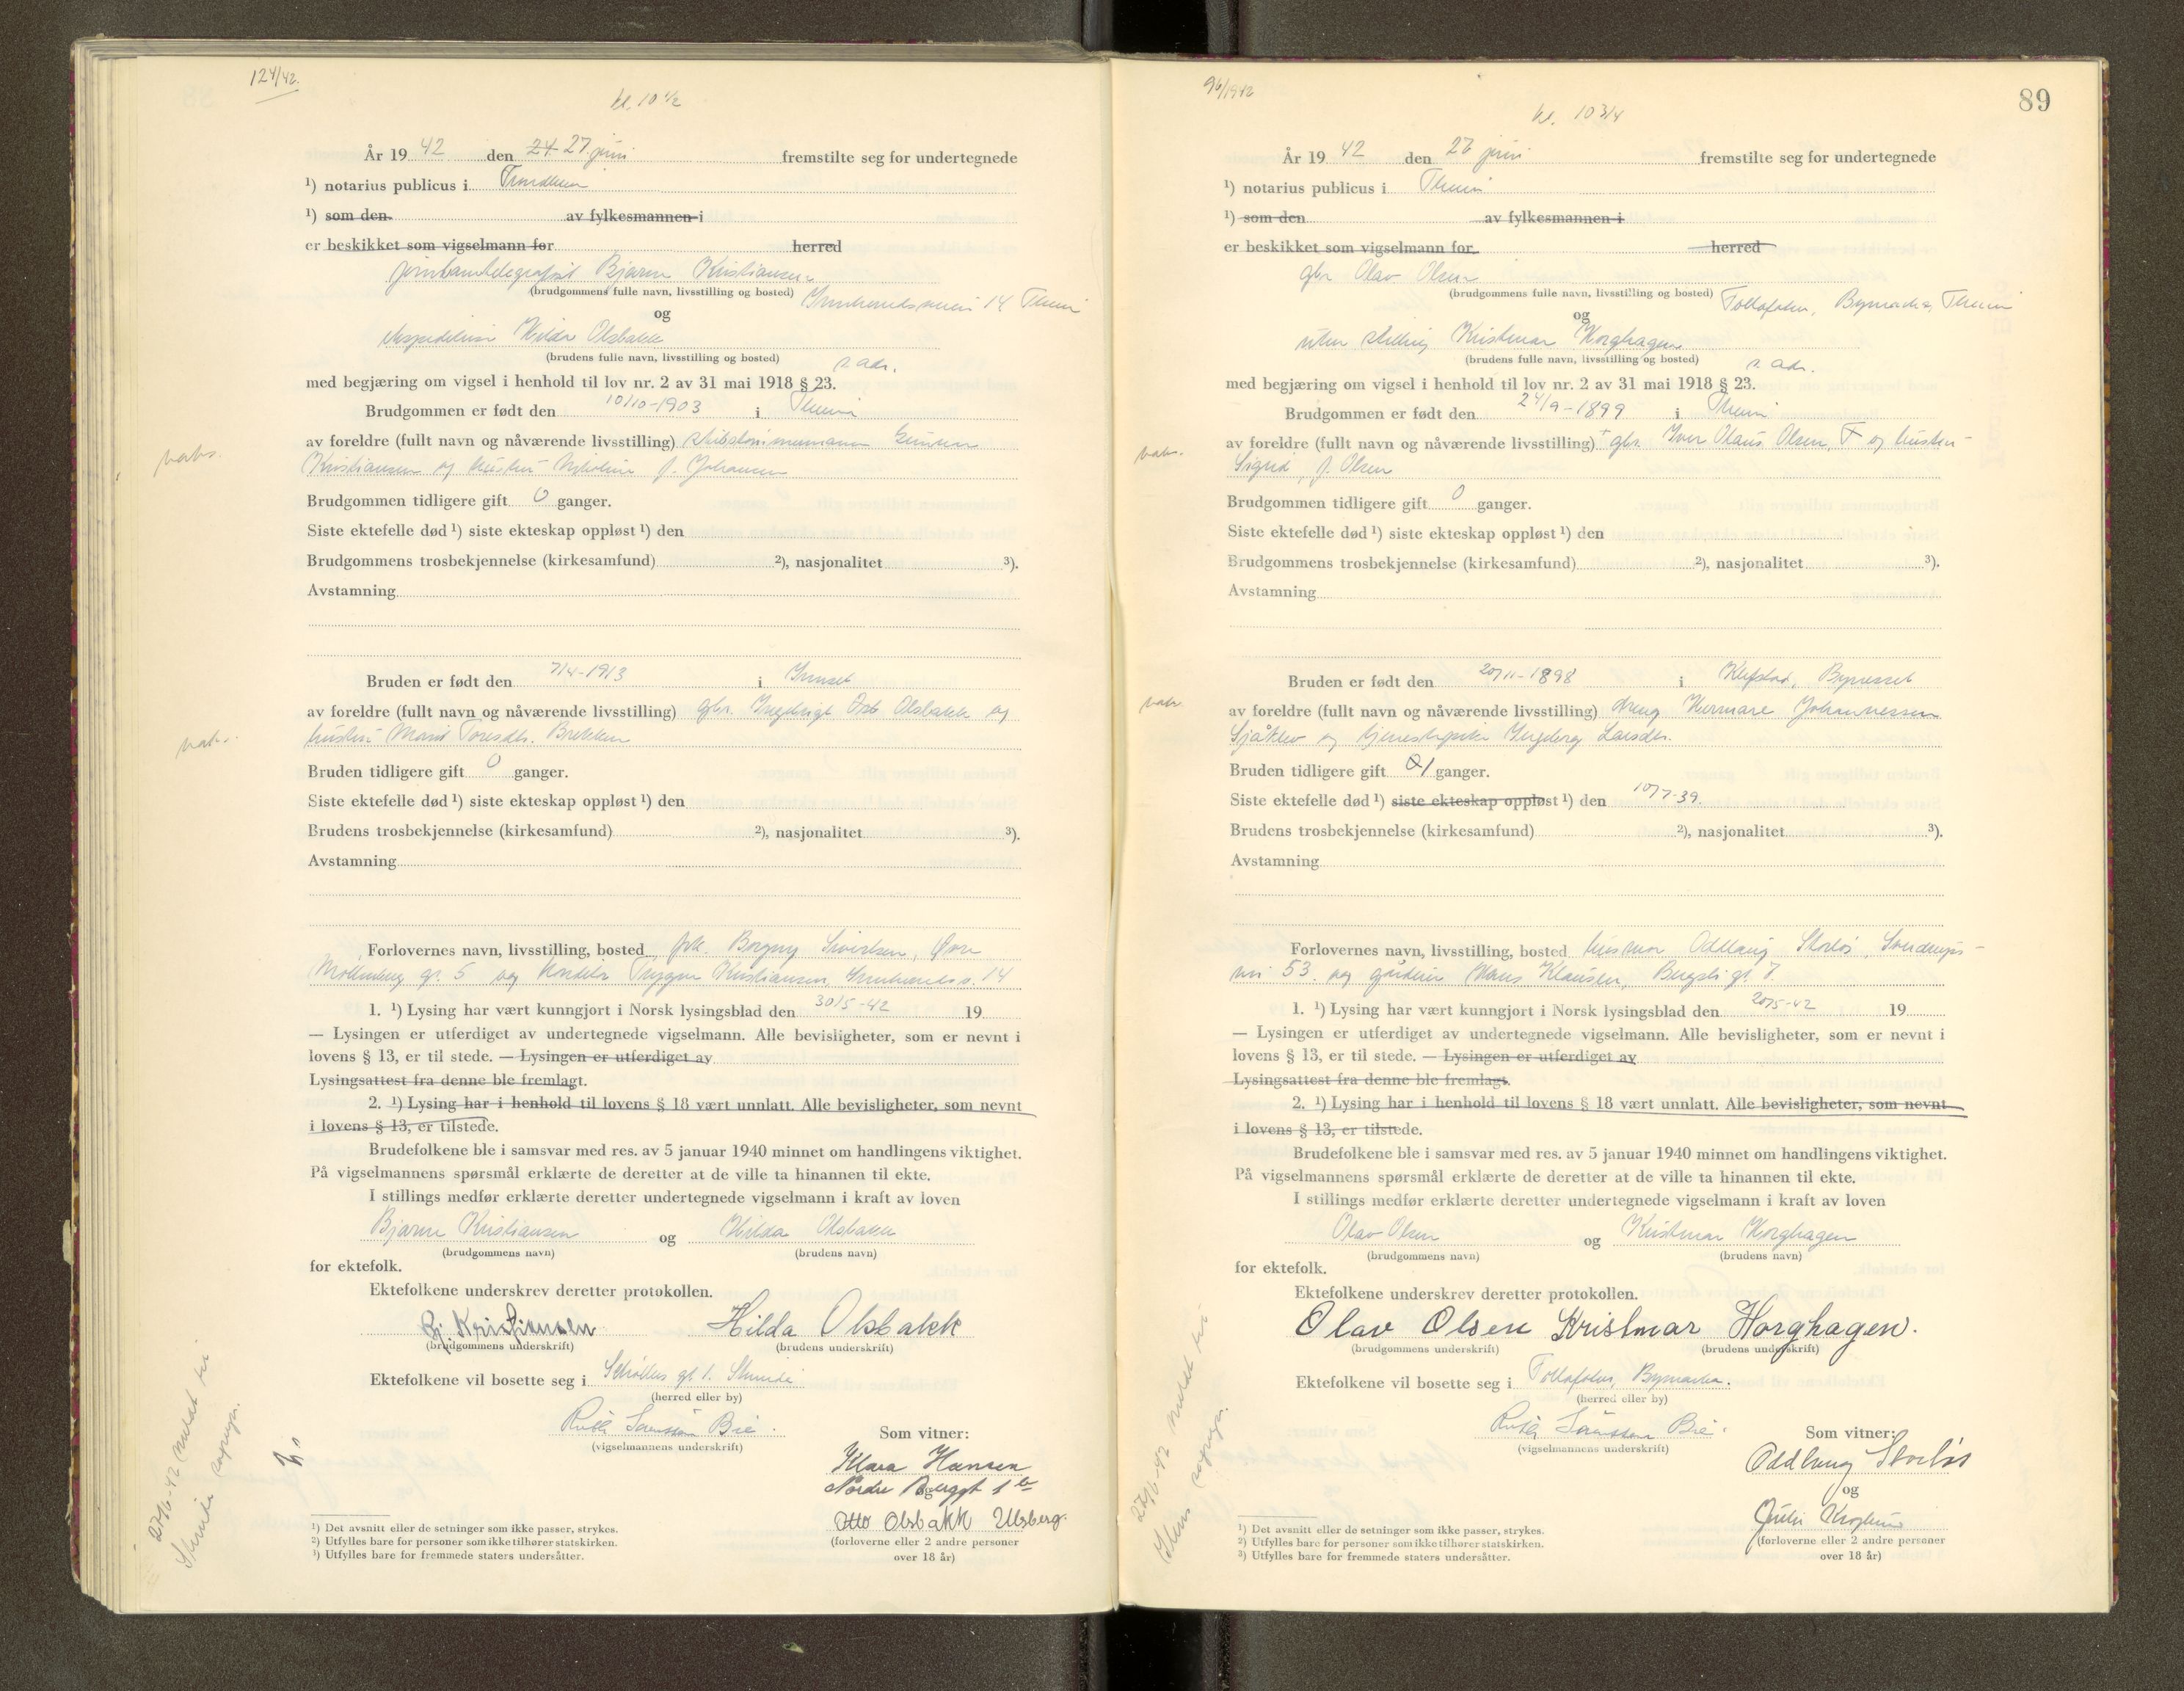 124/42.
kl. 10 1/2
År 19 42 den 24 27 juni fremstilte seg for undertegnede
1) notarius publicus i Trondheim
1) som den av fylkesmannen i
er beskikket som vigselmann for herred
Bjarne Kristiansen
(brudgommens fulle navn, livsstilling og bosted) 14 Theim
og
Hilda Olsbakk
(brudens fulle navn, livsstilling og bosted) s. adr.
med begjæring om vigsel i henhold til lov nr. 2 av 31 mai 1918 § 23.
Brudgommen er født den 10/10-1903 i Theim
av foreldre (fullt navn og nåværende livsstilling)
Kristiansen og hustru f. Johansen
Brudgommen tidligere gift 0 ganger.
Siste ektefelle død 1) siste ekteskap oppløst 1) den
Brudgommens trosbekjennelse (kirkesamfund) 2), nasjonalitet 3).
Avstamning
Bruden er født den 7/4-1913 i Innset
av foreldre (fullt navn og nåværende livsstilling) gbr. Ingebrigt Olsbakk og
hustru Marit Toresdtr. Brekken
Bruden tidligere gift 0 ganger.
Siste ektefelle død 1) siste ekteskap oppløst 1) den
Brudens trosbekjennelse (kirkesamfund) 2), nasjonalitet 3).
Avstamning
Forlovernes navn, livsstilling, bosted frk. Borgny Sivertsen, Øvre
Møllenberg gt. 5 og Trygve Kristiansen, 14
1. 1) Lysing har vært kunngjort i Norsk lysingsblad den 30/5-42 19
— Lysingen er utferdiget av undertegnede vigselmann. Alle bevisligheter, som er nevnt i
lovens § 13, er til stede. — Lysingen er utferdiget av
Lysingsattest fra denne ble fremlagt.
2. 1) Lysing har i henhold til lovens § 18 vært unnlatt. Alle bevisligheter, som nevnt
i lovens § 13, er tilstede.
Brudefolkene ble i samsvar med res. av 5 januar 1940 minnet om handlingens viktighet.
På vigselmannens spørsmål erklærte de deretter at de ville ta hinannen til ekte.
I stillings medfør erklærte deretter undertegnede vigselmann i kraft av loven
Bjarne Kristiansen og Hilda Olsbakk
(brudgommens navn) (brudens navn)
for ektefolk.
Ektefolkene underskrev deretter protokollen.
Bj. Kristiansen Hilda Olsbakk
(brudgommens underskrift) (brudens underskrift)
Ektefolkene vil bosette seg i gt 1. Strinda
(herred eller by)
Ruth Sørenssen Bie.
(vigselmannens underskrift)
Som vitner:
Klara Hansen
og
Otto Olsbakk Ulsberg.
(forloverne eller 2 andre personer
over 18 år)
27/6-42 meldt til
Strinda sogneprest.
1) Det avsnitt eller de setninger som ikke passer, strykes.
2) Utfylles bare for personer som ikke tilhører statskirken.
3) Utfylles bare for fremmede staters undersåtter.
96/1942
kl. 10 3/4
89
År 19 42 den 27 juni fremstilte seg for undertegnede
1) notarius publicus i Theim
1) som den av fylkesmannen i
er beskikket som vigselmann for herred
gbr. Olav Olsen
(brudgommens fulle navn, livsstilling og bosted) Bymarka, Theim
og
uten stilling Kristmar Horghagen
(brudens fulle navn, livsstilling og bosted) s. adr.
med begjæring om vigsel i henhold til lov nr. 2 av 31 mai 1918 § 23.
Brudgommen er født den 24/9-1899 i Theim
av foreldre (fullt navn og nåværende livsstilling) gbr. Iver Olaus Olsen, og hustru
Sigrid, f. Olsen
Brudgommen tidligere gift 0 ganger.
Siste ektefelle død 1) siste ekteskap oppløst 1) den
Brudgommens trosbekjennelse (kirkesamfund) 2), nasjonalitet 3).
Avstamning
Bruden er født den 20/11-1898 i Klefstad, Byneset
av foreldre (fullt navn og nåværende livsstilling) dreng Johannessen
og tjenestepike Ingeborg Larsdtr.
Bruden tidligere gift 0 1 ganger.
Siste ektefelle død 1) siste ekteskap oppløst 1) den 10/7-39.
Brudens trosbekjennelse (kirkesamfund) 2), nasjonalitet 3).
Avstamning
Forlovernes navn, livsstilling, bosted husmor Oddlaug Storløs,
53. og gårdeier Hans Klausen, gt. 7.
1. 1) Lysing har vært kunngjort i Norsk lysingsblad den 20/5-42 19
— Lysingen er utferdiget av undertegnede vigselmann. Alle bevisligheter, som er nevnt i
lovens § 13, er til stede. — Lysingen er utferdiget av
Lysingsattest fra denne ble fremlagt.
2. 1) Lysing har i henhold til lovens § 18 vært unnlatt. Alle bevisligheter, som nevnt
i lovens § 13, er tilstede.
Brudefolkene ble i samsvar med res. av 5 januar 1940 minnet om handlingens viktighet.
På vigselmannens spørsmål erklærte de deretter at de ville ta hinannen til ekte.
I stillings medfør erklærte deretter undertegnede vigselmann i kraft av loven
Olav Olsen og Kristmar Horghagen
(brudgommens navn) (brudens navn)
for ektefolk.
Ektefolkene underskrev deretter protokollen.
Olav Olsen Kristmar Horghagen.
(brudgommens underskrift) (brudens underskrift)
Ektefolkene vil bosette seg i Bymarka.
(herred eller by)
Ruth Sørenssen Bie.
(vigselmannens underskrift)
Som vitner:
Oddlaug Storløs
og
(forloverne eller 2 andre personer
over 18 år)
27/6-42 meldt til
Ilens sogneprest.
1) Det avsnitt eller de setninger som ikke passer, strykes.
2) Utfylles bare for personer som ikke tilhører statskirken.
3) Utfylles bare for fremmede staters undersåtter.